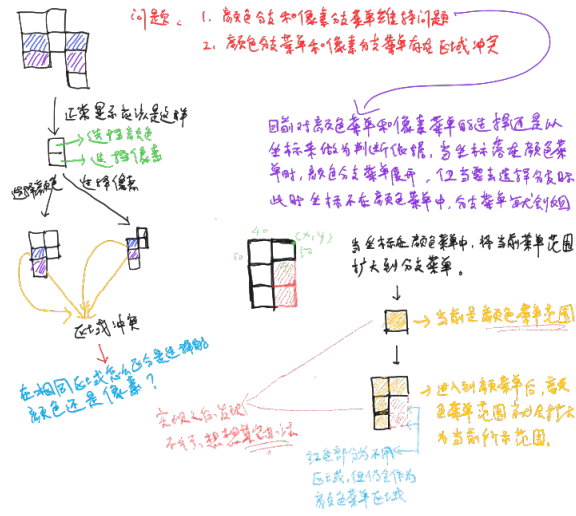 问题、1. 颜色分支和像素分支菜单维持问题
2. 颜色分支菜单和像素分支菜单存在区域冲突
正常显示应该是这样
选择颜色
选择像素
选择颜色
选择像素
区域冲突
在相同区域怎么区分是选择的
颜色还是像素？
目前对颜色菜单和像素菜单的选择还是以
坐标来做为判断依据，当坐标落在颜色菜
单时，颜色分支菜单展开，但当要去选择分支时
此时坐标不在颜色菜单中，分支菜单
40
(x,y)
50
50
当坐标在颜色菜单中，将当前菜单范围
扩大到分支菜单。
当前是颜色菜单范围
进入到颜色菜单后，颜
色菜单范围 会扩大
为当前所示范围。
实 发现
不行了，想想其它办法
红色部分为不用
区域，但仍会作为
颜色菜单区域